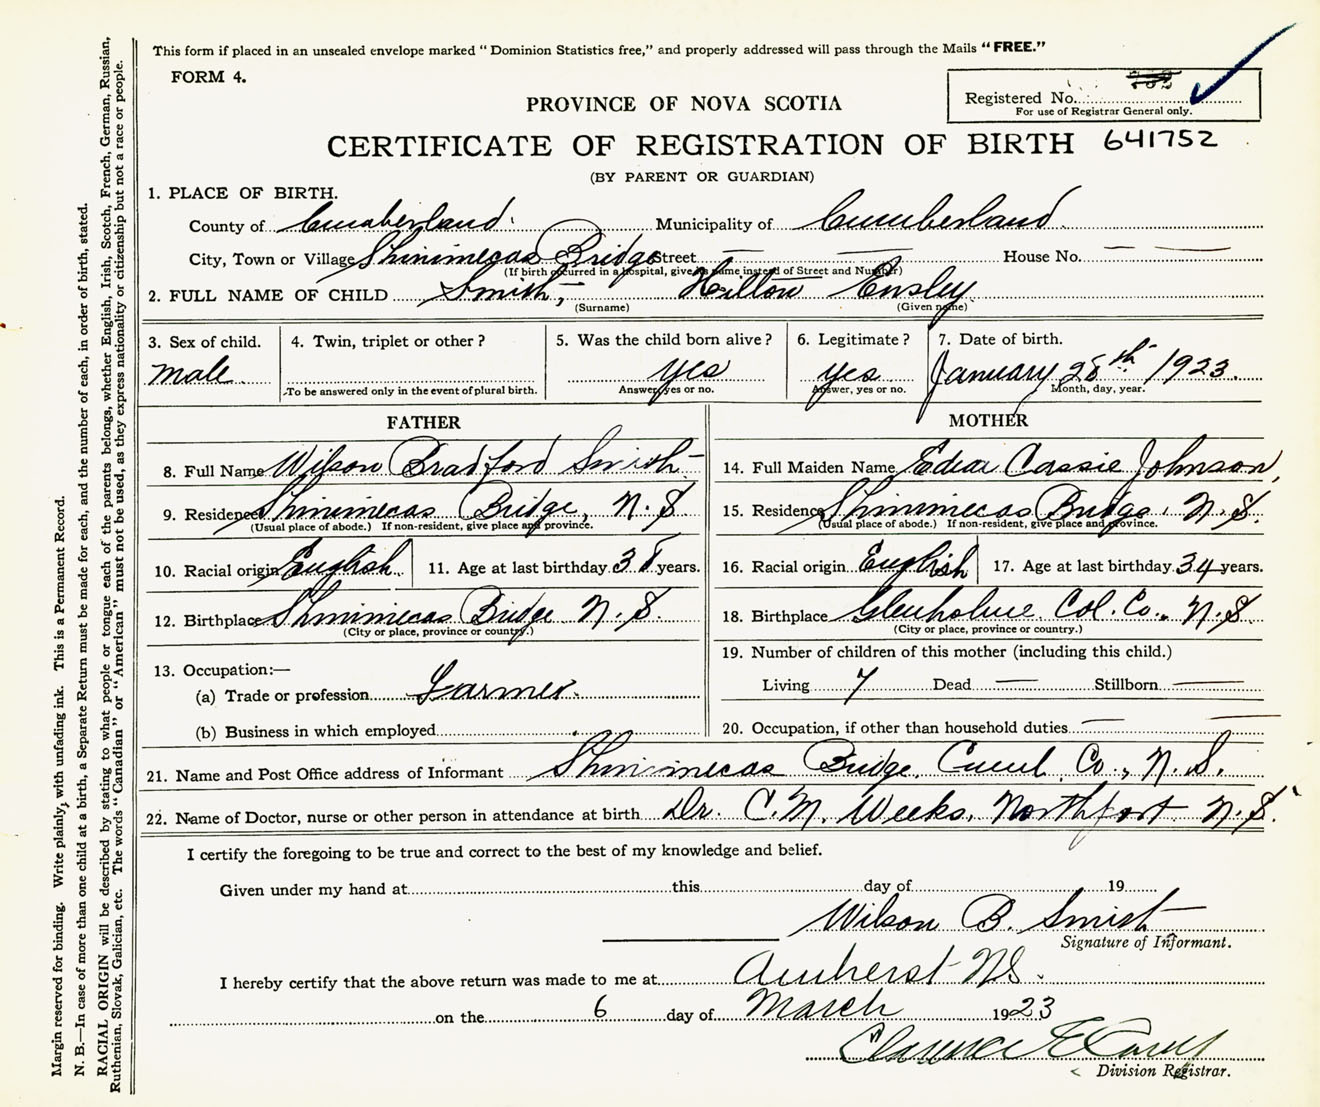 This form if placed in an unsealed envelope marked “Dominion Statistics free,” and properly addressed will pass through the Mails “FREE.”
FORM 4.
Registered No.
For use of Registrar General only.
PROVINCE OF NOVA SCOTIA
CERTIFICATE OF REGISTRATION OF BIRTH 641752
(BY PARENT OR GUARDIAN)
1. PLACE OF BIRTH.
County of Cumberland. Municipality of Cumberland.
City, Town or Village Shinimecas Bridge Street — — House No. — —
(If birth occurred in a hospital, give its name instead of Street and Number)
2. FULL NAME OF CHILD Smith, Hilton Ensley.
(Surname) (Given name)
3. Sex of child. 4. Twin, triplet or other? 5. Was the child born alive? 6. Legitimate? 7. Date of birth.
male yes yes January 28th 1923.
To be answered only in the event of plural birth. Answer, yes or no. Answer, yes or no. Month, day, year.
FATHER MOTHER
8. Full Name Wilson Bradford Smith 14. Full Maiden Name Edna Cassie Johnson,
9. Residence Shinimecas Bridge, N.S. 15. Residence Shinimecas Bridge. N.S.
(Usual place of abode.) If non-resident, give place and province. (Usual place of abode.) If non-resident, give place and province.
10. Racial origin English. 11. Age at last birthday 38 years. 16. Racial origin English 17. Age at last birthday 34 years.
12. Birthplace Shinimecas Bridge N.S. 18. Birthplace Glenholme. Col. Co., N.S.
(City or place, province or country.) (City or place, province or country.)
19. Number of children of this mother (including this child.)
13. Occupation:—
(a) Trade or profession Farmer. Living 7 Dead — Stillborn —
(b) Business in which employed 20. Occupation, if other than household duties — —
21. Name and Post Office address of Informant Shinimecas Bridge. Cumb. Co., N.S.
22. Name of Doctor, nurse or other person in attendance at birth Dr. C.M. Weeks, Northport N.S.
I certify the foregoing to be true and correct to the best of my knowledge and belief.
Given under my hand at this day of 19
Wilson B. Smith
Signature of Informant.
I hereby certify that the above return was made to me at Amherst NS.
on the 6 day of March 1923
Clarence E
Division Registrar.
Margin reserved for binding. Write plainly, with unfading ink. This is a Permanent Record.
N. B.—In case of more than one child at a birth, a Separate Return must be made for each, and the number of each, in order of birth, stated.
RACIAL ORIGIN will be described by stating to what people or tongue each of the parents belongs, whether English, Irish, Scotch, French, German, Russian,
Ruthenian, Slovak, Galician, etc. The words “Canadian” or “American” must not be used, as they express nationality or citizenship but not a race or people.